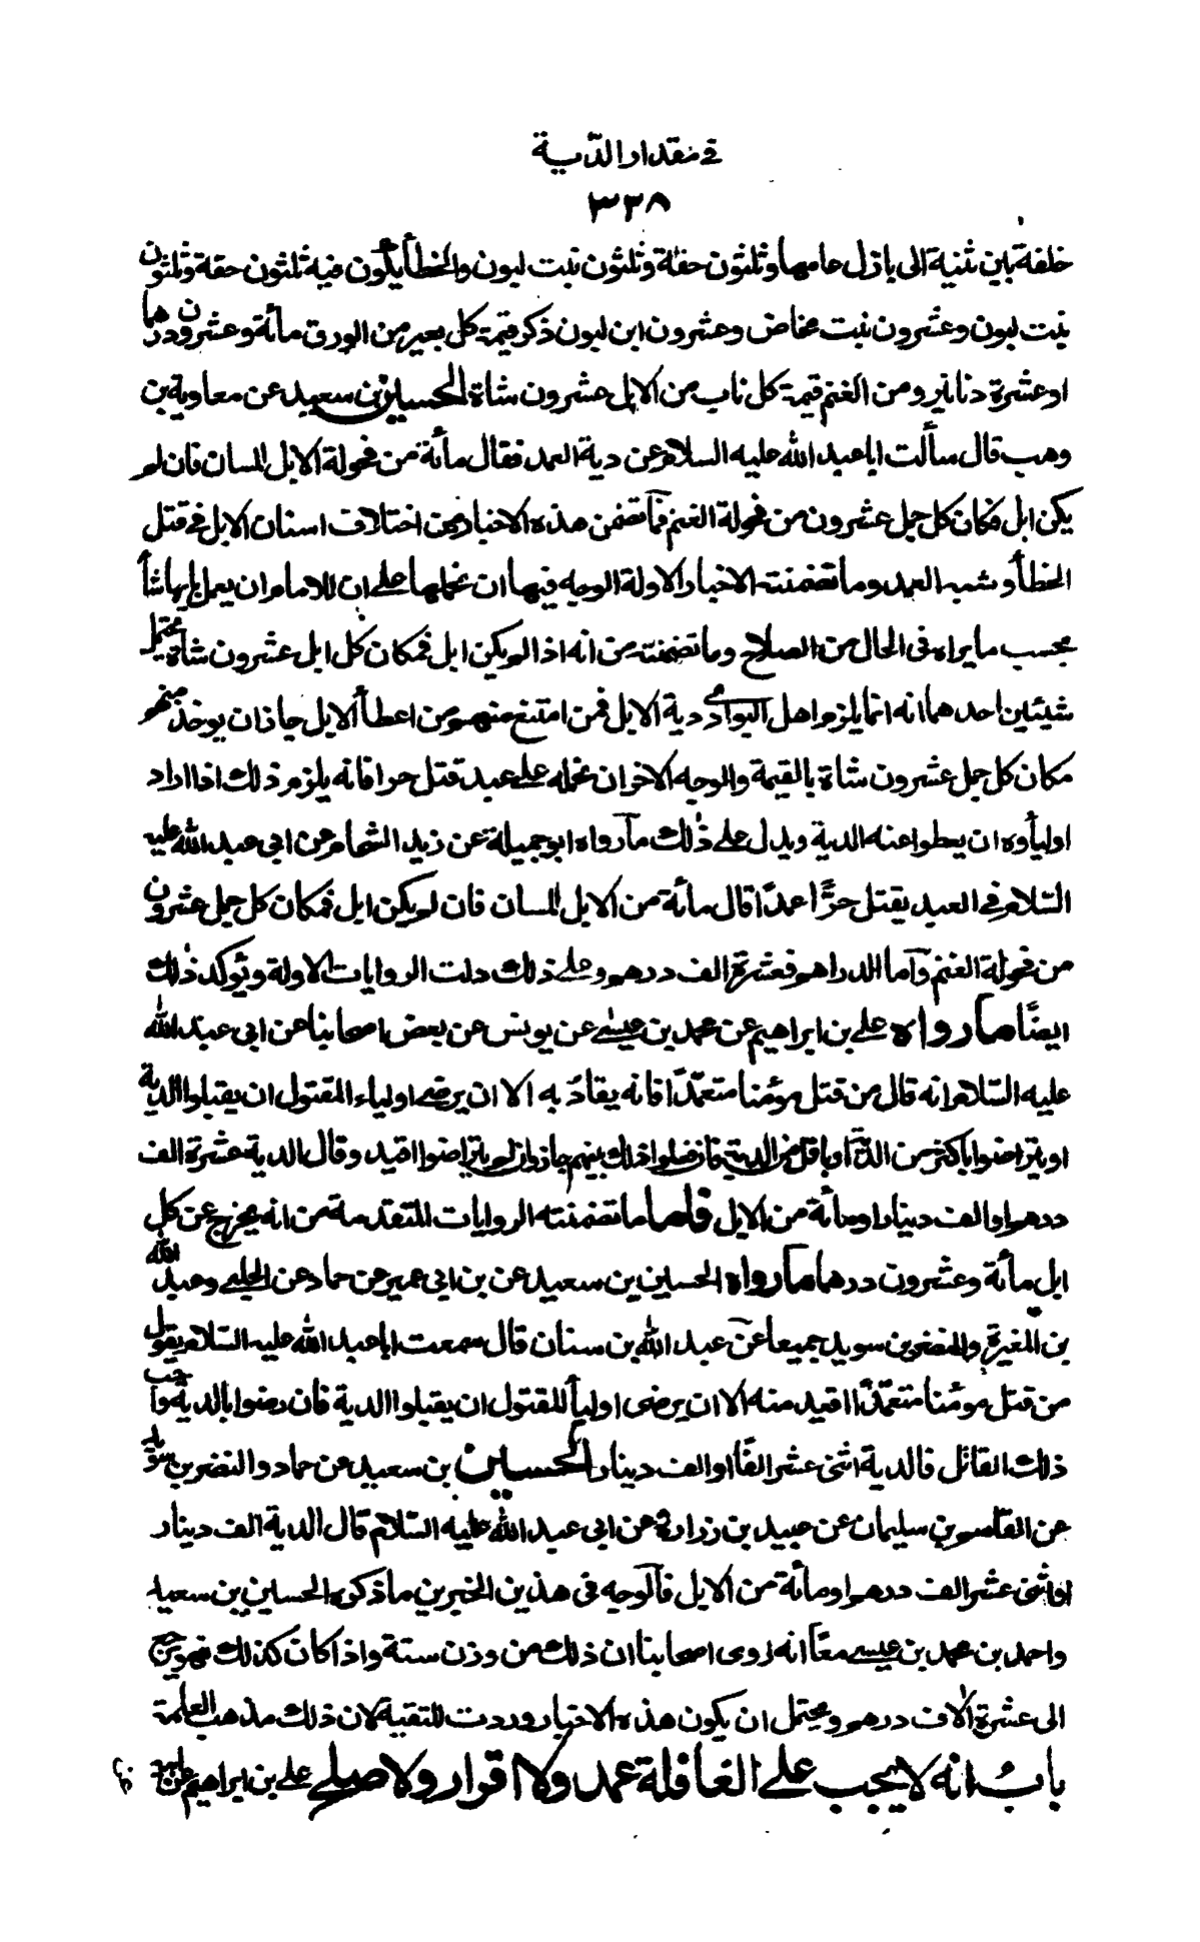 في مقدار الدّية
٣٣٨
خلفة بين ثنية الى بازل عامها وثلثون حقة وثلثون بنت لبون والخطأ يكون فيه ثلثون حقة وثلثون
بنت لبون وعشرون بنت مخاض وعشرون ابن لبون ذكر قيمة كل بعير من الورق مأئة وعشرون درهما
او عشرة دنانير ومن الغنم قيمة كل ناب من الابل عشرون شاة الحسين بن سعيد عن معاوية بن
وهب قال سألت ابا عبد الله عليه السلام عن دية العمد فقال مأئة من فحولة الابل المسان فان لم
يكن ابل فكان كل جمل عشرون من فحولة الغنم فما تضمن هذه الاخبار من اختلاف اسنان الابل في قتل
الخطأ وشبه العمد وما تضمنته الاخبار الاولة الوجه فيها ان نحملها على ان للامام ان يعمل بايها شأ
بحسب ما يراه فى الحال من الصلاح وما تضمنته من انه اذا لم يكن ابل فمكان كل ابل عشرون شاة يحتمل
شيئين احدهما انه انما يلزم اهل البوادي دية الابل فمن امتنع منهم من اعطأ الابل جاز ان يوخذ منهم
مكان كل جمل عشرون شاة بالقيمة والوجه الاخر ان نحمله على عبد قتل حرا فانه يلزم ذلك اذا اراد
اوليأوه ان يعطوا عنه الدية ويدل على ذلك ما رواه ابو جميلة عن زيد الشحام عن ابي عبد الله عليه
السّلام في العبد يقتل حرًّا عمدًا قال مأئة من الابل المسان فان لم يكن ابل فمكان كل جمل عشرون
من فحولة الغنم وآما الدراهم فعشرة الف درهم وعلى ذلك دلت الروايات الاولة ويؤكد ذلك
ايضًا ما رواه على بن ابراهيم عن محمد بن عيسى عن يونس عن بعض اصحابنا عن ابى عبد الله
عليه السّلام انه قال من قتل مؤمنا متعمّدًا فانه يقاد به الا ان يرضى اولياء المقتول ان يقبلوا الدية
او يتراضوا باكثر من الدّية او باقل من الدية فان فعلوا ذلك بينهم جاز وان لم يتراضوا اقيد وقال الدية عشرة الف
درهم او الف دينار او مأئة من الابل فاما ما تضمنته الروايات المتقدمة من انه يخرج عن كل
ابل مأئة وعشرون درهما ما رواه الحسين بن سعيد عن بن ابي عمير عن حماد عن الحلبى وعبد الله
بن المغيرة والنضر بن سويد جميعا عن عبد الله بن سنان قال سمعت ابا عبد الله عليه السّلام يقول
من قتل مؤمنا متعمّدًا اقيد منه الا ان يرضى اوليأ المقتول ان يقبلوا الدية فان رضوا بالدية واحب
ذلك القاتل فالدية اثنى عشر الفًا او الف دينار الحسين بن سعيد عن حماد والنضر بن سويد
عن القاسم بن سليمان عن عبيد بن زرارة عن ابى عبد الله عليه السّلام قال الدية الف دينار
او اثنى عشر الف درهم او مأئة من الابل فالوجه فى هذين الخبرين ما ذكره الحسين بن سعيد
واحمد بن محمد بن عيسى معًا انه روى اصحابنا ان ذلك من وزن ستة واذا كان كذلك فهو يرجع
الى عشرة آلاف درهم ويحتمل ان يكون هذه الاخبار وردت للتقية لان ذلك مذهب العامة
باب انه لا يجب على العاقلة عمد ولا اقرار ولا صلح على بن ابراهيم عن ابيه